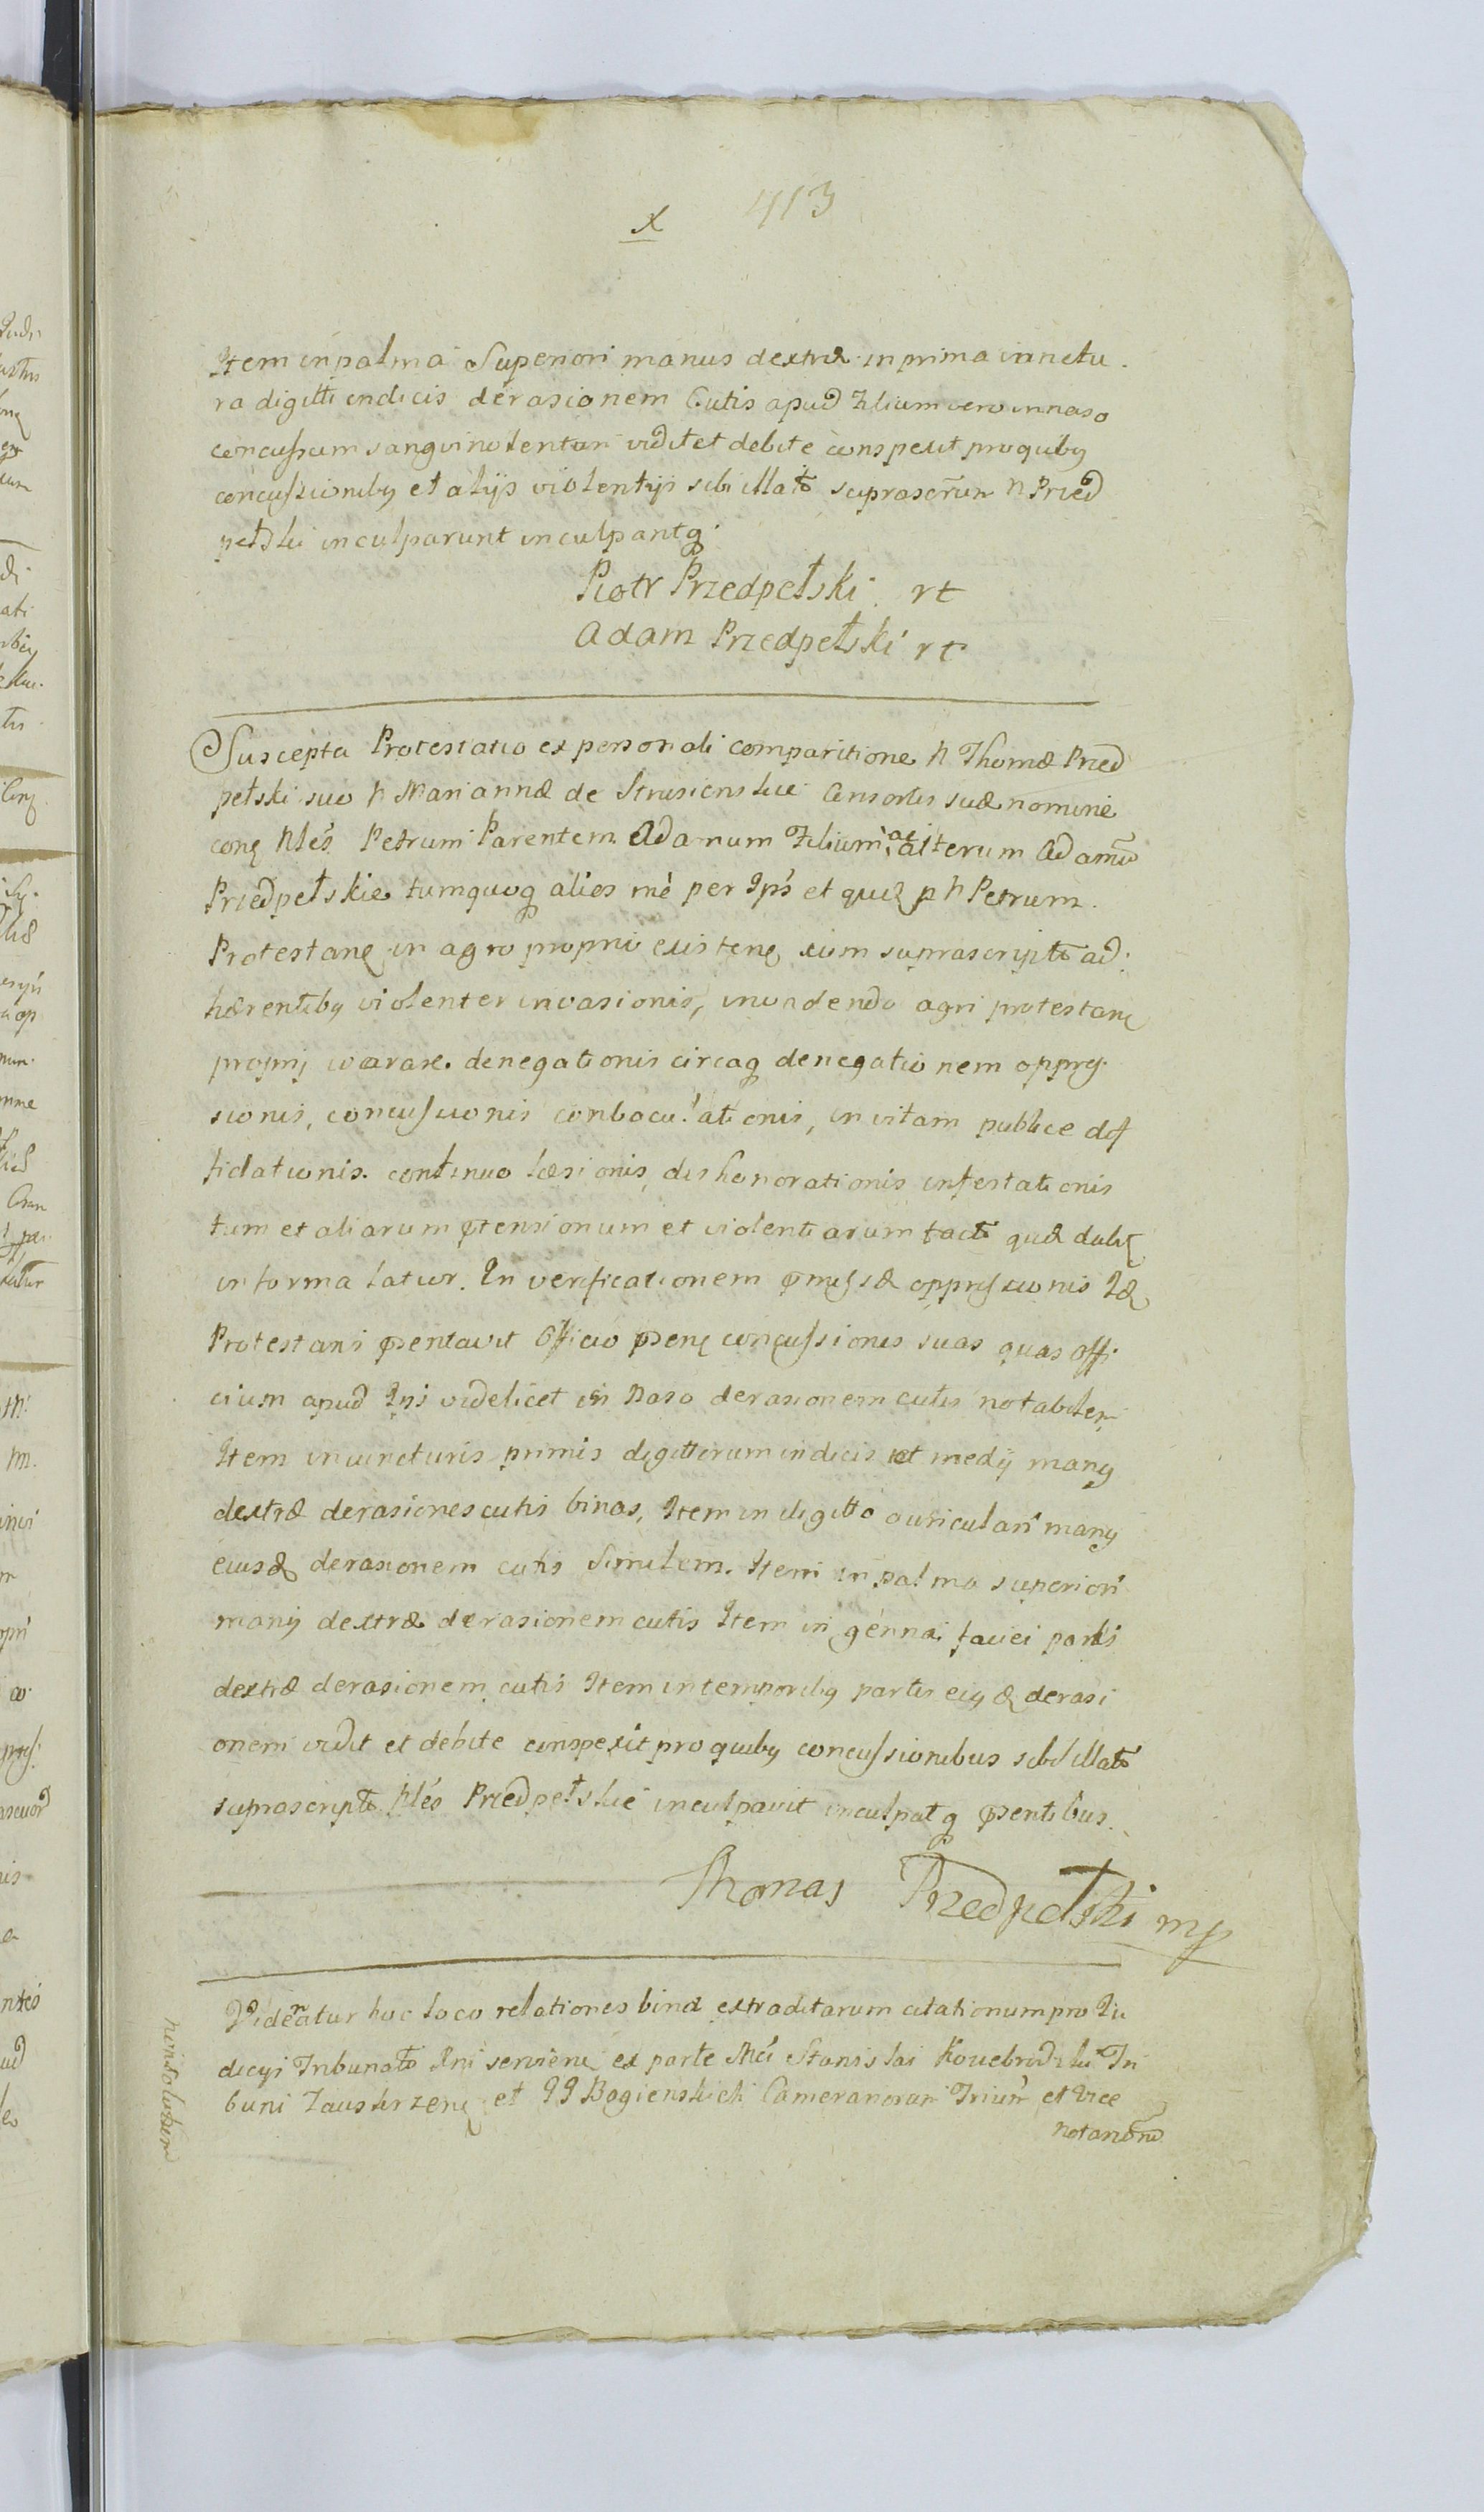 X 413
Item in palma Superiori manus dextræ in prima iunctu
ra digitti indicis derasionem Cutis apud Filium vero in naso
concussum sangvinolentum vidit et debite conspexit pro quiby
concussioniby et alijs violentijs sibi illatō suprascrūn N Przed
pełski inculparunt inculpantq
Piotr Przedpełski rt
Adam Przedpełski rt
Suscepta Protestatio ex personali comparitione N Thomæ Przed
pełski suo N Mariannæ de Strusienskie Consortis suæ nomine
conę Nles Petrum Parentem Adamum Filium ac alterum Adamū
Przedpełskie tumquoq alios me per Ips et quę p N Petrum
Protestanę in agro proprio existenę cum suprascriptō ad
hærentiby violenter invasionis, inundendo agri protestanę
proprij warare denegationis circaq denegationem oppres
sionis, concussionis conbaculationis, in vitam publice dif
fidationis continuo læsionis, deshonorationis infestationis
tum et aliarum ptensionum et violentiarum factō quæ dabit
informa latior. In verificationem pmissæ oppressionis Idę
Protestans psentavit Officio psenę concussiones suas quas offi
cium apud Ips videlicet in Naso derasionem cutis notabilem
Item in iuncturis primis digittorum indicis et medij many
dextræ derasiones cutis binas, Item in digitto auriculari many
eiusdę derasionem cutis Similem. Item in palma superiori
many dextræ derasionem cutis Item in genna faciei partis
dextræ derasionem cutis Item in temporiby partis eiydę derasi
onem vidit et debite conspexit pro quiby concussionibus sibi illatō
suprascriptō Nles Przedpełskie inculpavit inculpatq psentibus
Thomas Przedpełski mp
Videantur hoc loco relationes binæ extraditarum citationum pro Iu
dicijs Tribunatō Rni servienę ex parte Mci Stanislai Kouebrodzki Tri
buni Zauskrzenę et GG Bogienskich Cameranorum et Vice
notariorū
non solutum